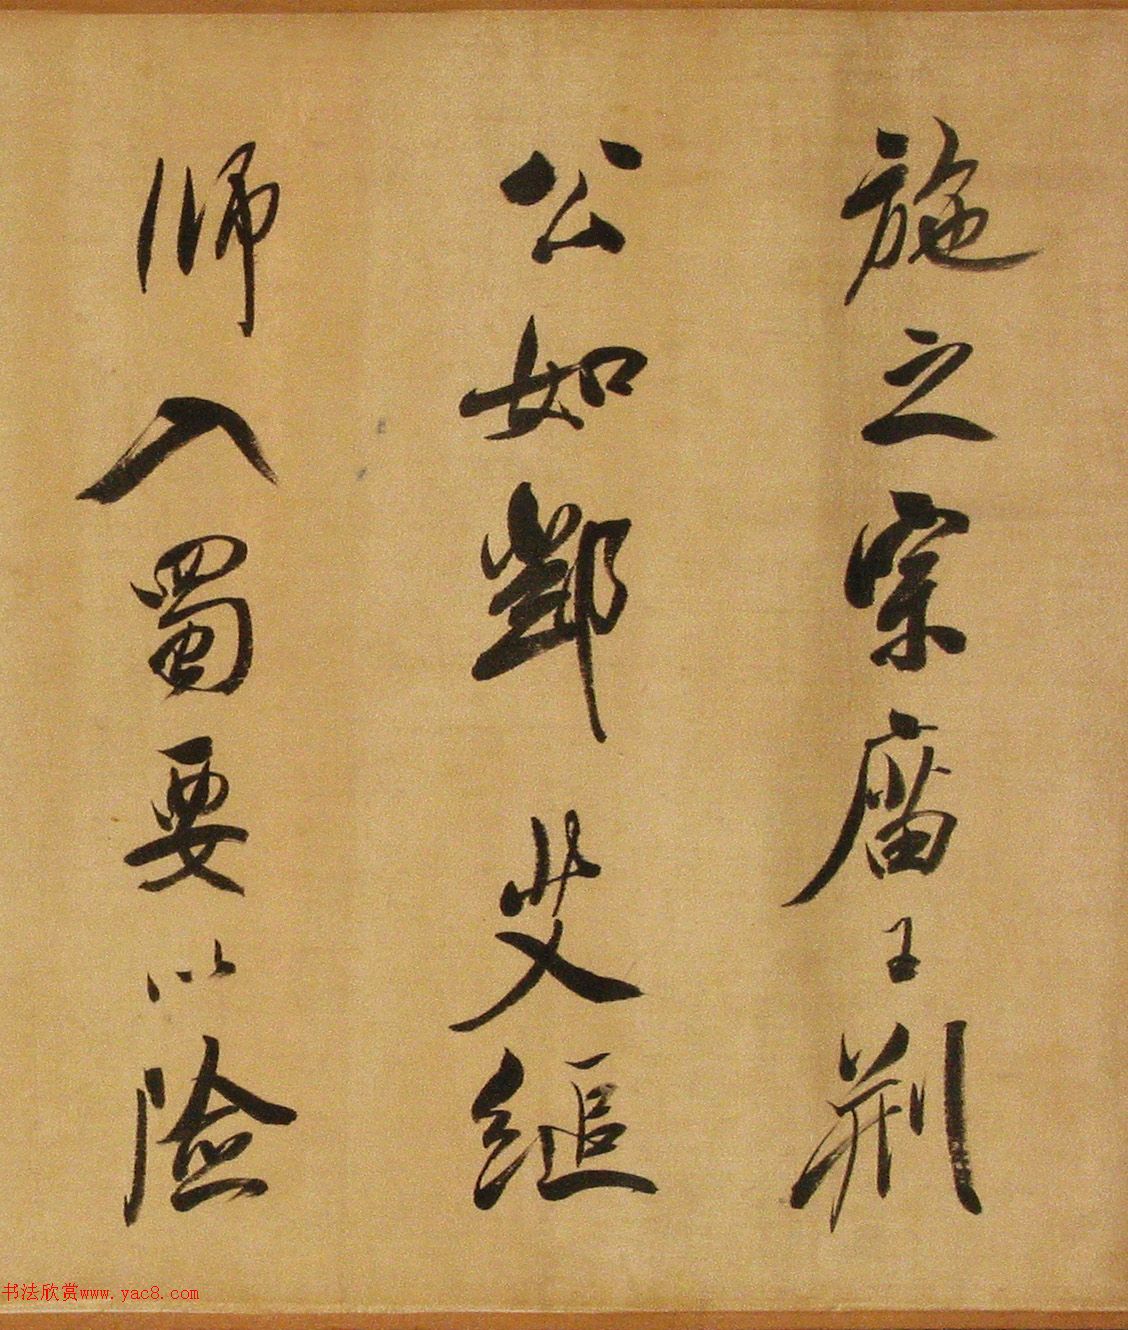 施之宗廟王荆
公如鄧艾縋
師入蜀要以險
书法欣赏www.yac8.com